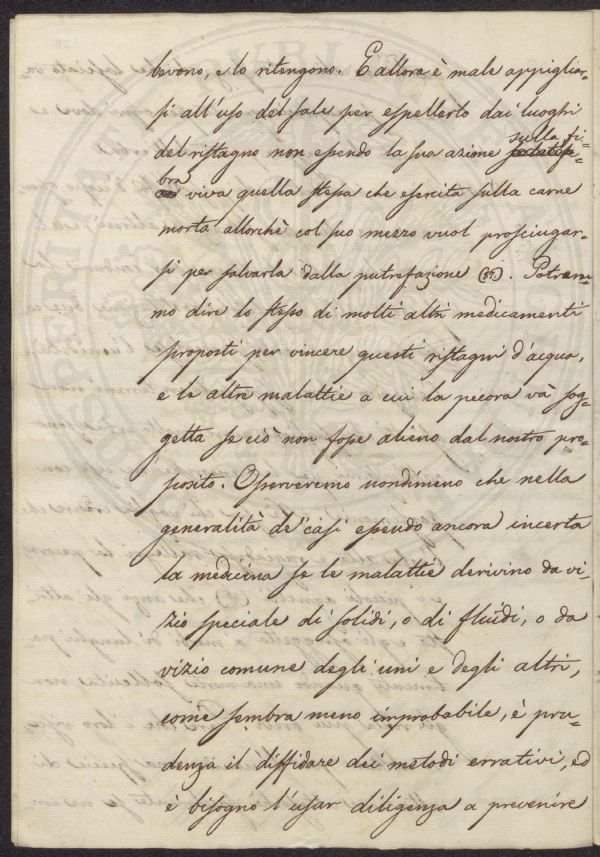 bevono, e lo ritengono. E allora è male appigliar-
si all'uso del sale per espellerlo dai luoghi
del ristagno non essendo la sua azione sulla fi-
bra viva quella stessa che esercita sulla carne
morta allorchè col suo mezzo vuol prosciugar-
si per salvarla dalla putrefazione (27). Potrem-
mo dire lo stesso di molti altri medicamenti
proposti per vincere questi ristagni d'acqua,
e le altre malattie a cui la pecora và sog-
getta se ciò non fosse alieno dal nostro pro-
posito. Osserveremo nondimeno che nella
generalità de' casi essendo ancora incerta
la medicina se le malattie derivino da vi-
zio speciale di solidi, o di fluidi, o da
vizio comune degli uni e degli altri,
come sembra meno improbabile, è pru-
denza il diffidare dei metodi errativi, ed
è bisogno l'usar diligenza a prevenire